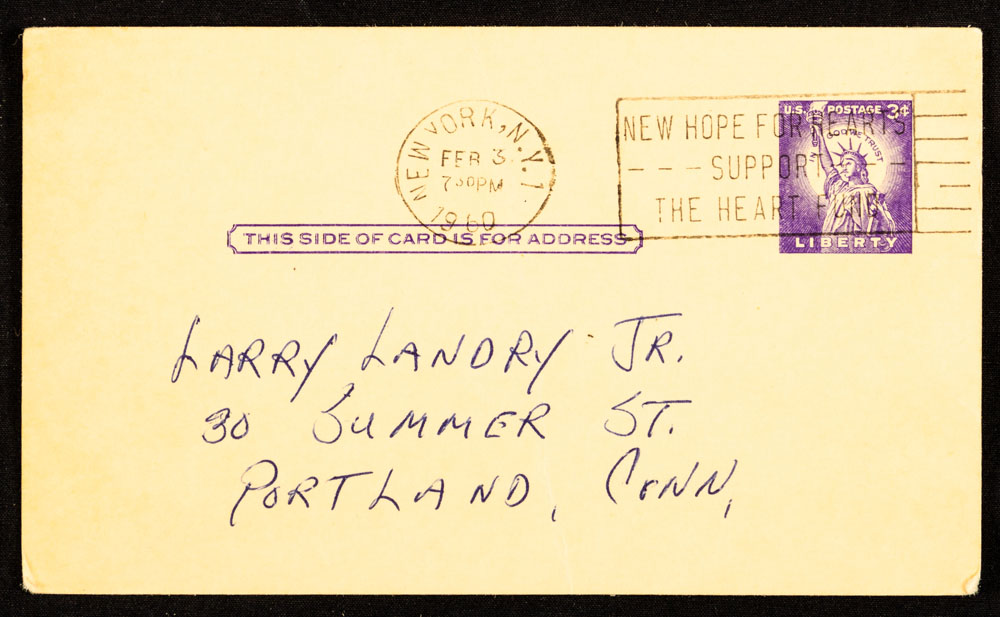 NEW YORK, N.Y. 1
FEB 3
7 30 PM
1960
NEW HOPE FOR HEARTS
- - - SUPPORT - - -
THE HEART FUND
U.S. POSTAGE 3¢
IN GOD WE TRUST
LIBERTY
THIS SIDE OF CARD IS FOR ADDRESS
LARRY LANDRY JR.
30 SUMMER ST.
PORTLAND, CONN,